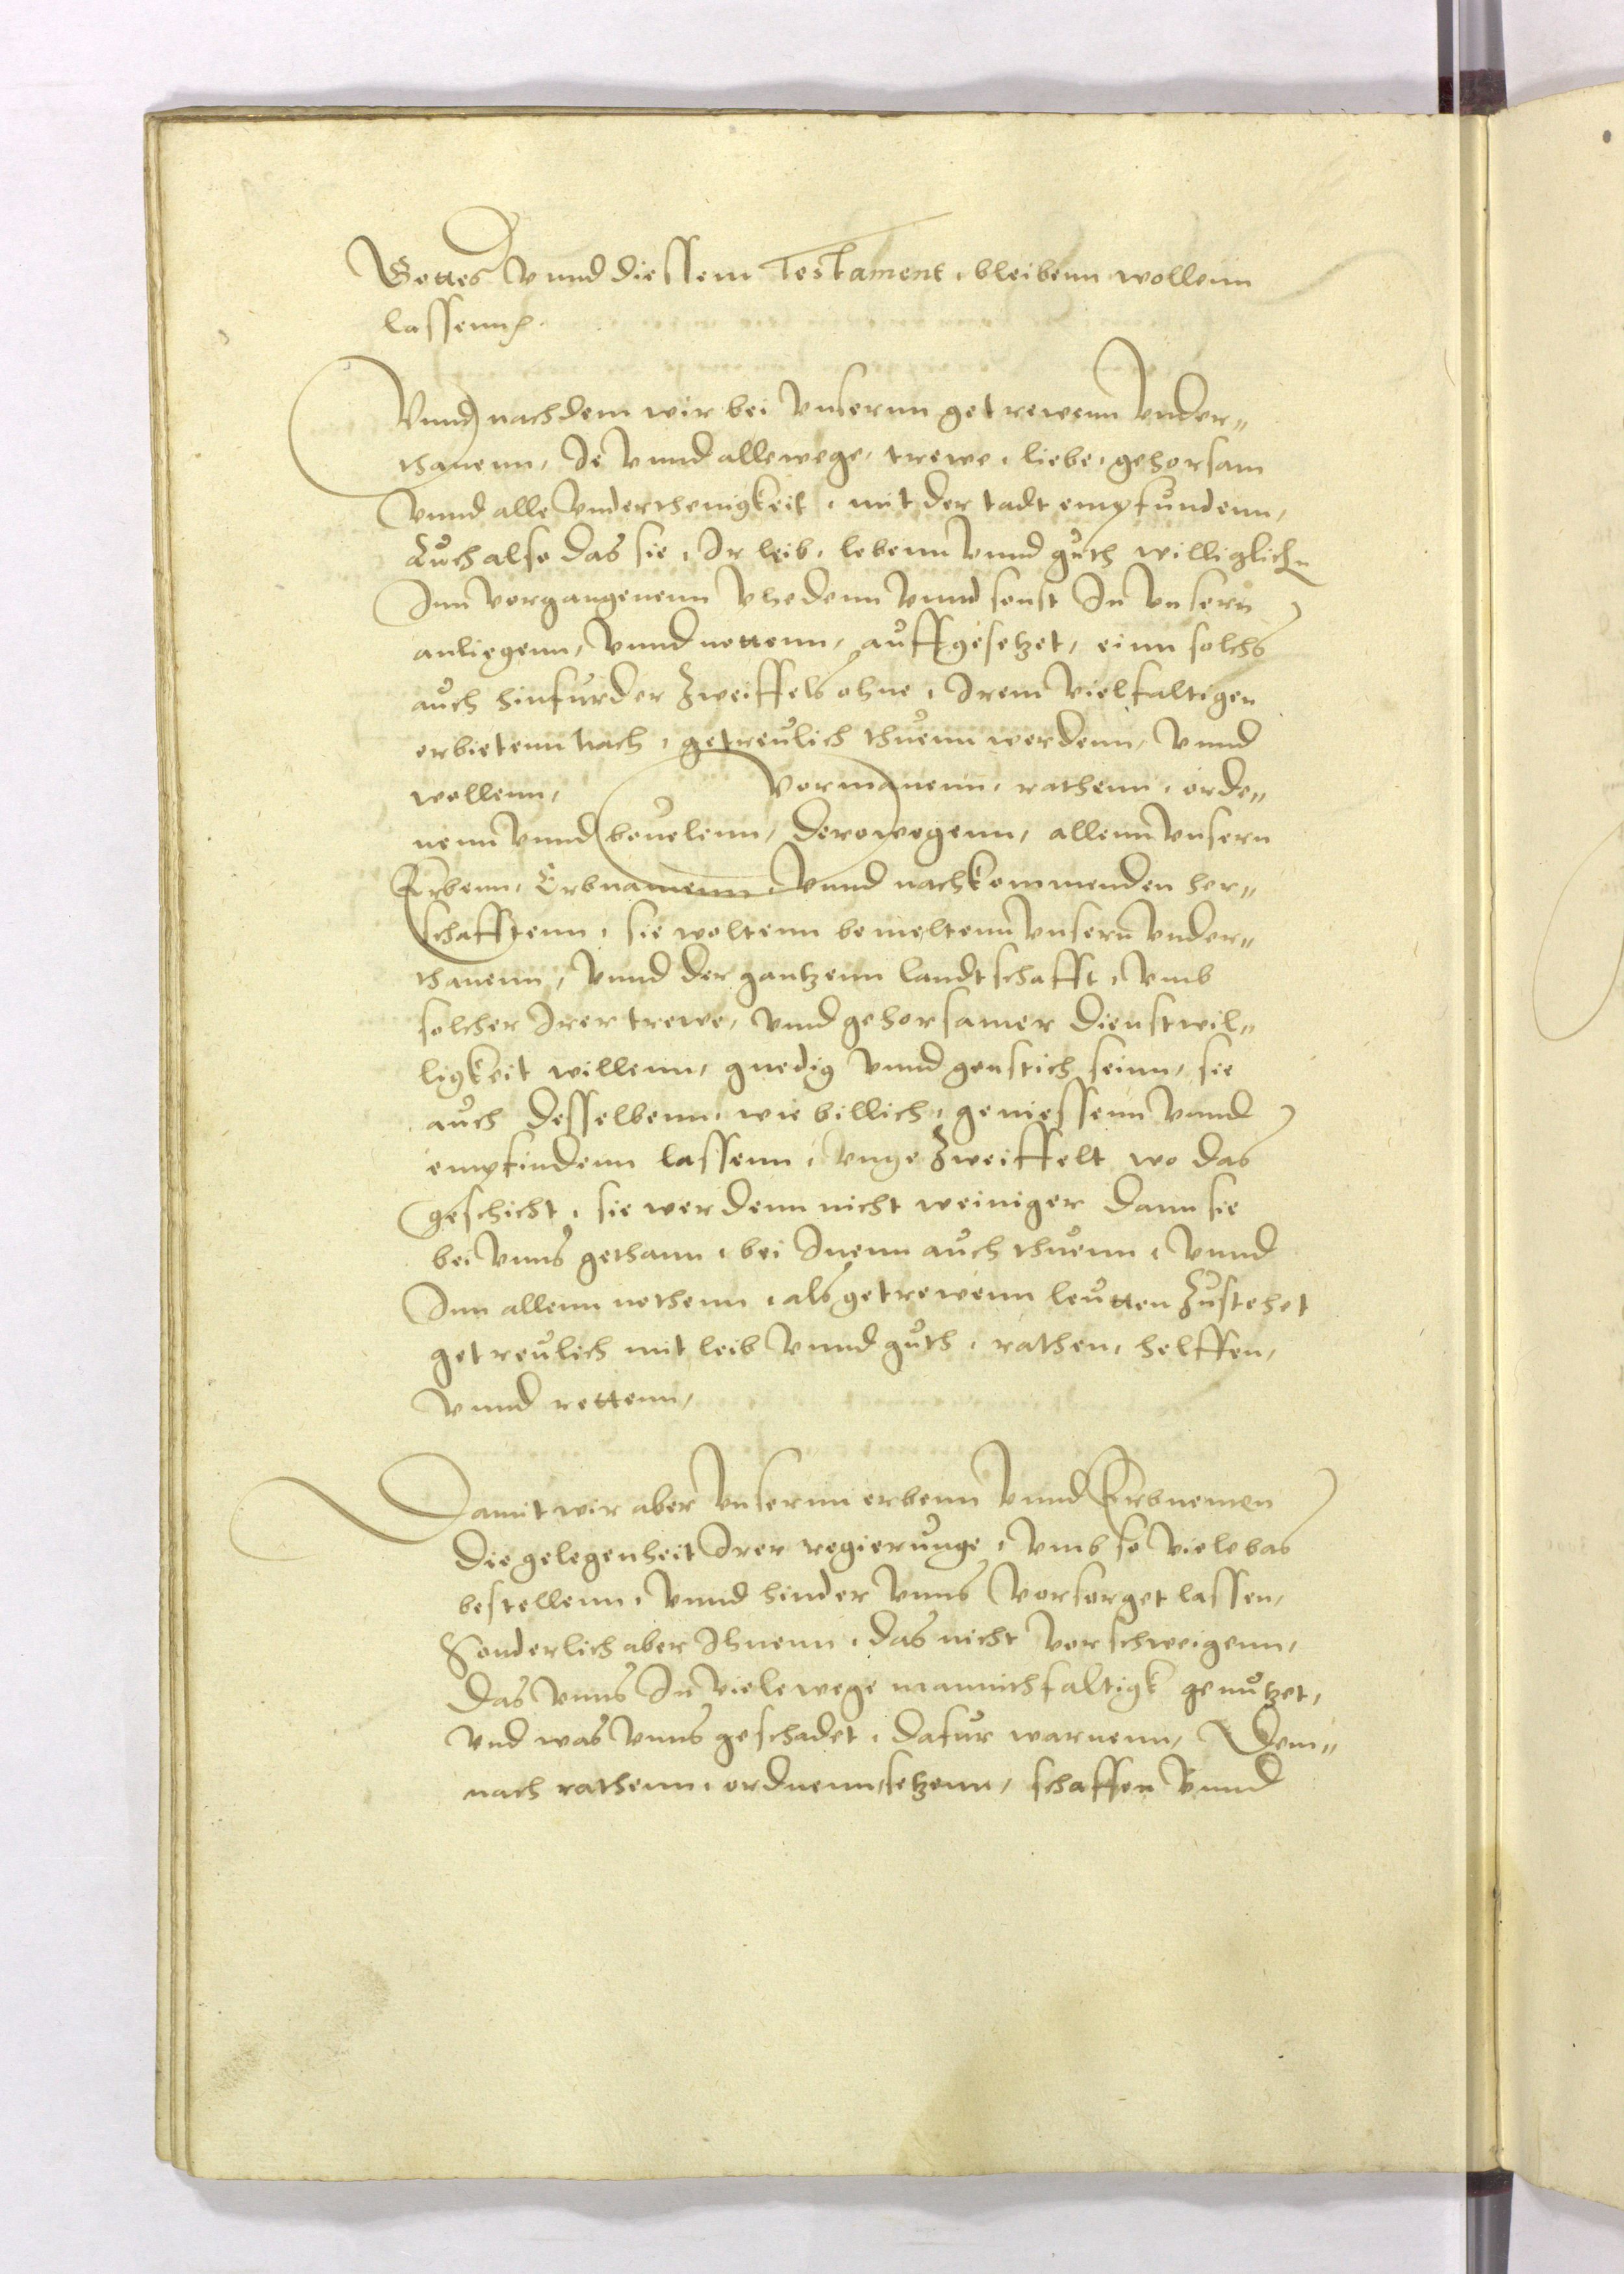 Gottes vnnd diessem Testament, bleibenn wollenn
lassenn.
Vnnd nachdem wir bei vnsernn getrewenn vnder„
thanenn, Je vnnd allewege, trewe, liebe, gehorsam
vnnd alle vnderthenigkeit, mit der tadt empfundenn,
Auch also das sie, Ir leib, lebenn vnnd guth williglichn
Inn vorgangenenn vhedenn vnnd sonst In vnsern
anliegenn, vnnd nottenn, auffgesetzet, einn solchs
auch hinfurder Zweiffels ohne, Irem vielfaltigen
erbietenn nach, getreulich thuenn werdenn, vnnd
wollenn, Vormanenn, rathenn, orde„
nenn vnnd beuelenn, derowegenn, allenn vnsern
Erbenn, Erbnamenn vnnd nachkommenden her„
schafftenn, sie woltenn bemeltenn vnsern vnder„
thanenn, vnnd der gantzenn landtschafft, vmb
solcher Irer trewe, vnnd gehorsamer dienstwil„
ligkeit willenn, gnedig vnnd genstich seinn, sie
auch desselbenn, wie billich, geniessenn vnnd
empfindenn lassenn, vngeZweiffelt wo das
geschicht, sie werdenn nicht weiniger dann sie
bei vnns gethann, bei Inenn auch thuenn, vnnd
Inn allenn nothenn, als getrewenn leutten Zustehet
getreulich mit leib vnnd guth, rathen, helffen,
vnnd rettenn,
Damit wir aber vnsernn erbenn vnnd Erbnemen
die gelegenheit Irer regierunge, vmb so viele bas
bestellenn, vnnd hinder vnns vorsorget lassen,
Sonderlich aber Ihnenn, das nicht vorschweigenn,
das vnns In viele wege mannichfaltigk genutzet,
vnd was vnns geschadet, dafur warnenn, Dem„
nach rathenn, ordnenn, setzenn, schaffen vnnd